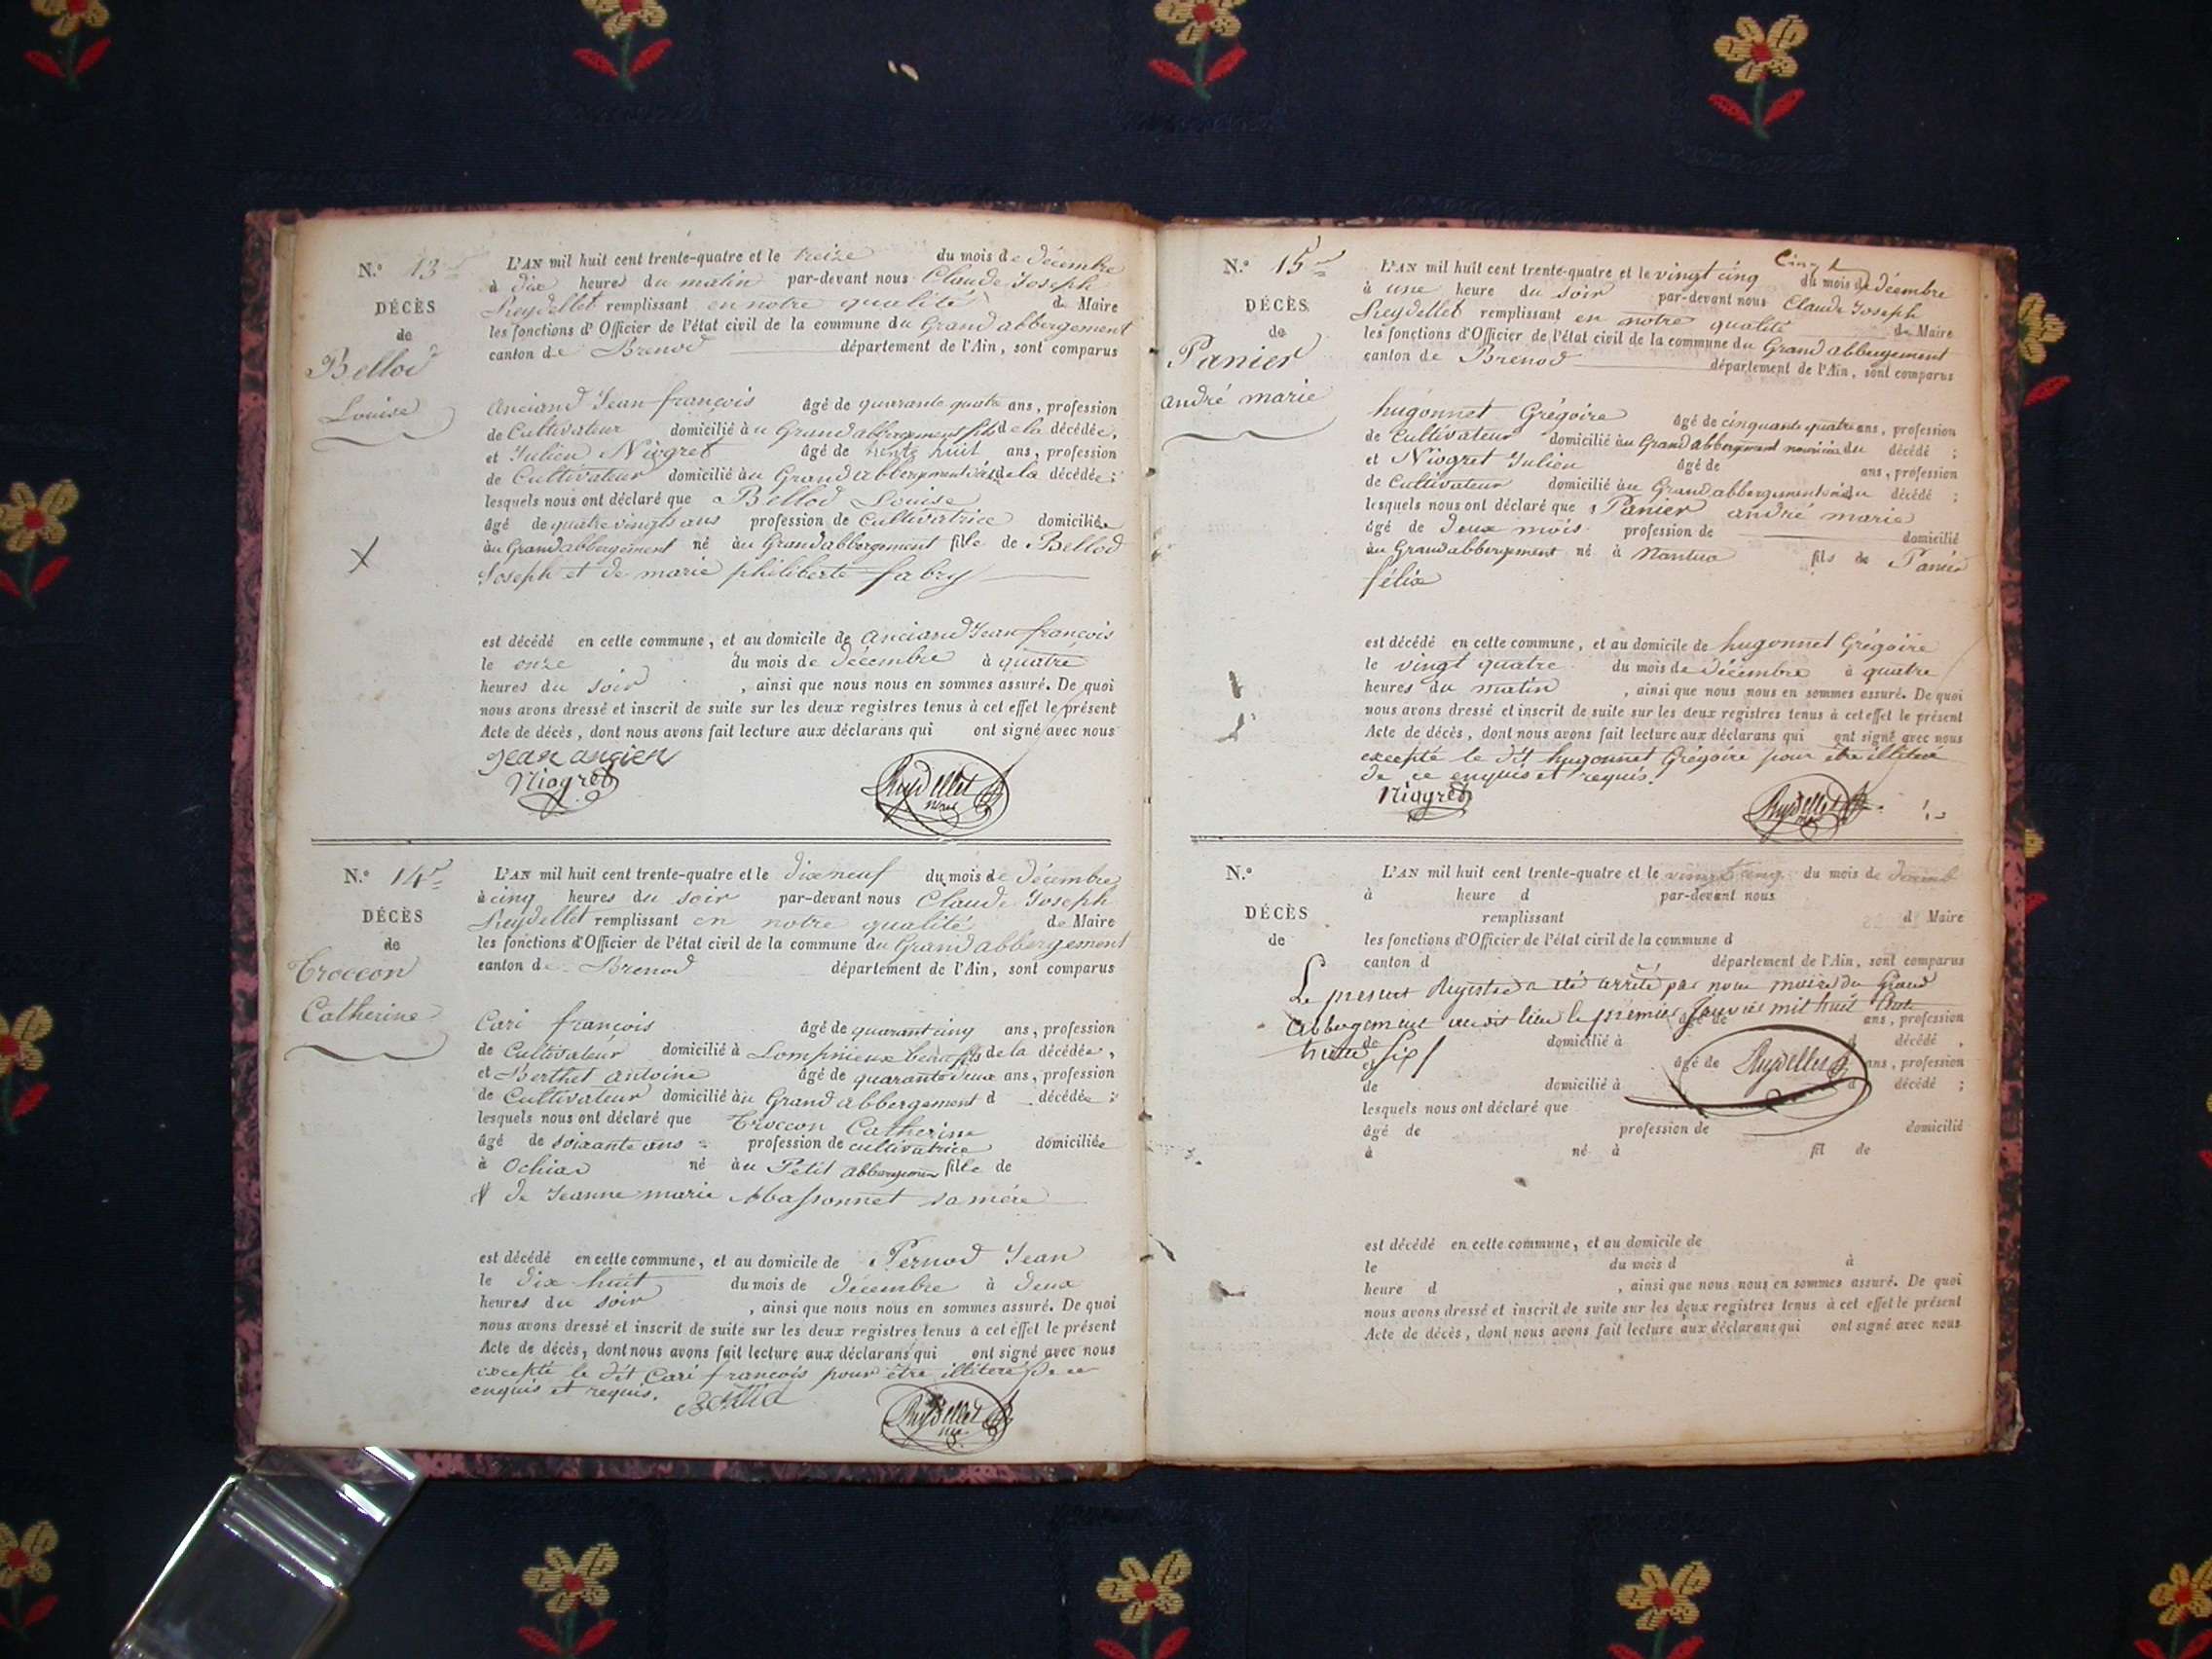 N.o 13
DÉCÈS
de
Bellod
Louise
L'AN mil huit cent trente-quatre et le treize du mois de décembre
à dix heures du matin par-devant nous Claude Joseph
Reydellet remplissant en notre qualité de Maire
les fonctions d'Officier de l'état civil de la commune du Grand abbergement
canton de Brenod département de l'Ain, sont comparus
Anciand Jean françois âgé de quarante quatre ans, profession
de Cultivateur domicilié au Grand abbergement fils de la décédée,
et Julien Niogret âgé de trente huit ans, profession
de Cultivateur domicilié au Grand abbergement de la décédée;
lesquels nous ont déclaré que Bellod Louise
âgé de quatre vingts ans profession de Cultivatrice domiciliée
au Grand abbergement né au Grand abbergement fille de Bellod
Joseph et de marie philiberte fabry
est décédé en cette commune, et au domicile de Anciand Jean françois
le onze du mois de décembre à quatre
heures du soir, ainsi que nous nous en sommes assuré. De quoi
nous avons dressé et inscrit de suite sur les deux registres tenus à cet effet le présent
Acte de décès, dont nous avons fait lecture aux déclarans qui ont signé avec nous
Jean ancien
Niogret Reydellet
N.o 14
DÉCÈS
de
Troccon
Catherine
L'AN mil huit cent trente-quatre et le dix neuf du mois de décembre
à cinq heures du soir par-devant nous Claude Joseph
Reydellet remplissant en notre qualité de Maire
les fonctions d'Officier de l'état civil de la commune du Grand abbergement
canton de Brenod département de l'Ain, sont comparus
Cari françois âgé de quarant cinq ans, profession
de Cultivateur domicilié à Lompnieux beau fils de la décédée,
et Berthet antoine âgé de quarante deux ans, profession
de Cultivateur domicilié au Grand abbergement d décédée;
lesquels nous ont déclaré que Troccon Catherine
âgé de soixante ans profession de cultivatrice domiciliée
à Ochiaz né au Petit abbergement fille de
de Jeanne marie Massonnet sa mère
est décédé en cette commune, et au domicile de Pernod Jean
le dix huit du mois de décembre à deux
heures du soir, ainsi que nous nous en sommes assuré. De quoi
nous avons dressé et inscrit de suite sur les deux registres tenus à cet effet le présent
Acte de décès, dont nous avons fait lecture aux déclarans qui ont signé avec nous
excepté le dit Cari françois pour être illiteré de ce
enquis et requis. Reydellet
N.o 15
DÉCÈS
de
Panier
andré marie
L'AN mil huit cent trente-quatre et le vingt cinq du mois de décembre
à une heure du soir par-devant nous Claude Joseph
Reydellet remplissant en notre qualité de Maire
les fonctions d'Officier de l'état civil de la commune du Grand abbergement
canton de Brenod département de l'Ain, sont comparus
hugonnet Grégoire âgé de cinquante quatre ans, profession
de Cultivateur domicilié au Grand abbergement du décédé;
et Niogret Julien âgé de ans, profession
de Cultivateur domicilié au Grand abbergement du décédé;
lesquels nous ont déclaré que Panier andré marie
âgé de deux mois profession de domicilié
au Grand abbergement né à Nantua fils de Panier
félix
est décédé en cette commune, et au domicile de hugonnet Grégoire
le vingt quatre du mois de décembre à quatre
heures du matin, ainsi que nous nous en sommes assuré. De quoi
nous avons dressé et inscrit de suite sur les deux registres tenus à cet effet le présent
Acte de décès, dont nous avons fait lecture aux déclarans qui ont signé avec nous
excepté le dit hugonnet Grégoire pour être illiteré
de ce enquis et requis.
Niogret Reydellet
N.o
DÉCÈS
de
L'AN mil huit cent trente-quatre et le vingt cinq du mois de décemb
à heure d par-devant nous
remplissant d Maire
les fonctions d'Officier de l'état civil de la commune d
canton d département de l'Ain, sont comparus
Le présent Registre a été arrêté par nous maire du Grand
Abbergement audit lieu le premier Janvier mil huit Cent
trente six
âgé de ans, profession
de domicilié à d décédé,
et âgé de Reydellet ans, profession
de domicilié à d décédé;
lesquels nous ont déclaré que
âgé de profession de domicilié
à né à fil de
est décédé en cette commune, et au domicile de
le du mois d à
heure d , ainsi que nous nous en sommes assuré. De quoi
nous avons dressé et inscrit de suite sur les deux registres tenus à cet effet le présent
Acte de décès, dont nous avons fait lecture aux déclarans qui ont signé avec nous